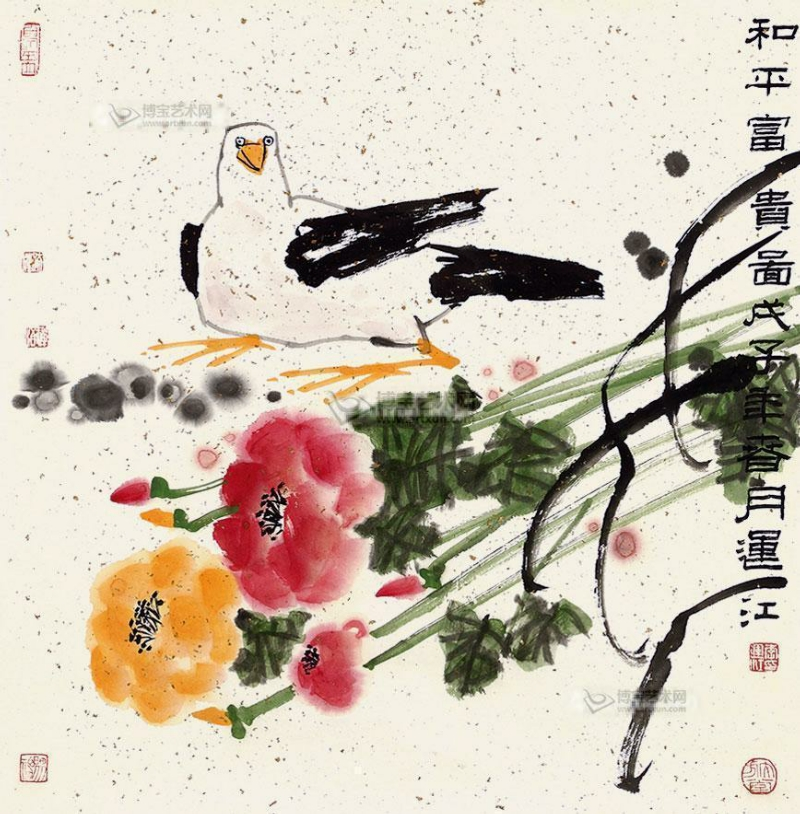 和平富貴啚戊子年春月運江
博宝艺术网
www.artxun.com
博宝艺术网
www.artxun.com
博宝艺术网
www.artxun.com